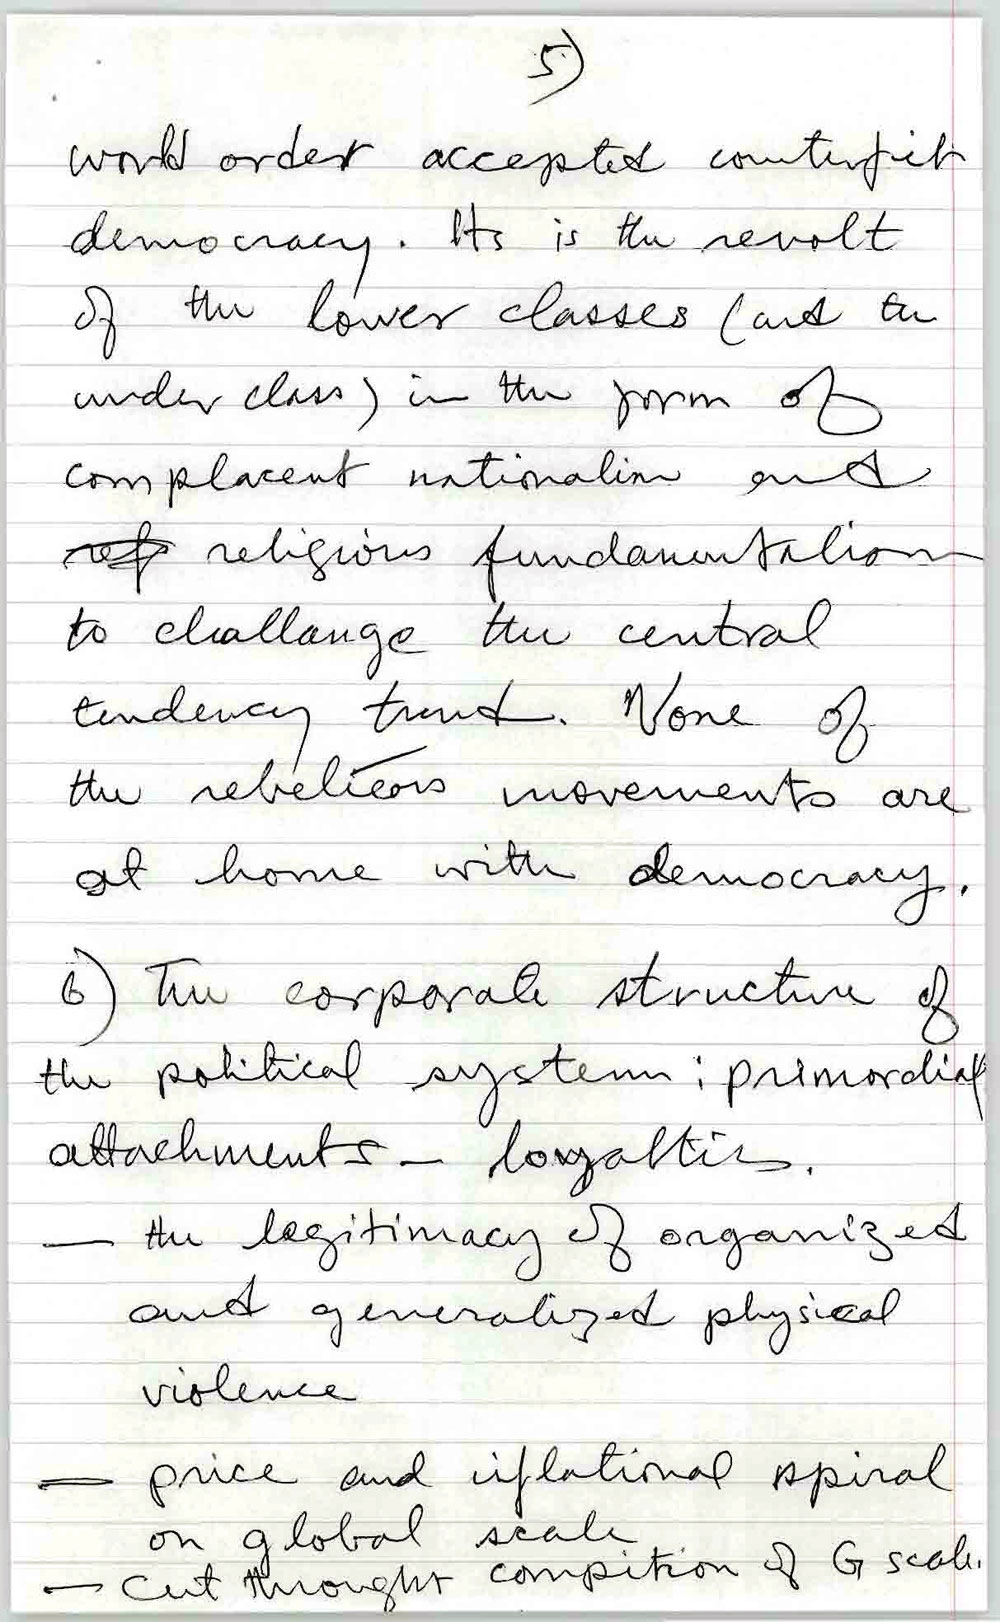 5)
world order accepted counterfeit
democracy. Its is the revolt
of the lower classes (and the
under class) in the form of
complacent nationalism and
religious fundamentalism
to challange the central
tendency trend. None of
the rebelious movements are
at home with democracy.
6) The corporate structure of
the political system; primordial
attachments - loyalties.
— the legitimacy of organized
and generalized physical
violence
— price and inflational spiral
on global scale
— cut throught compition of G scale.